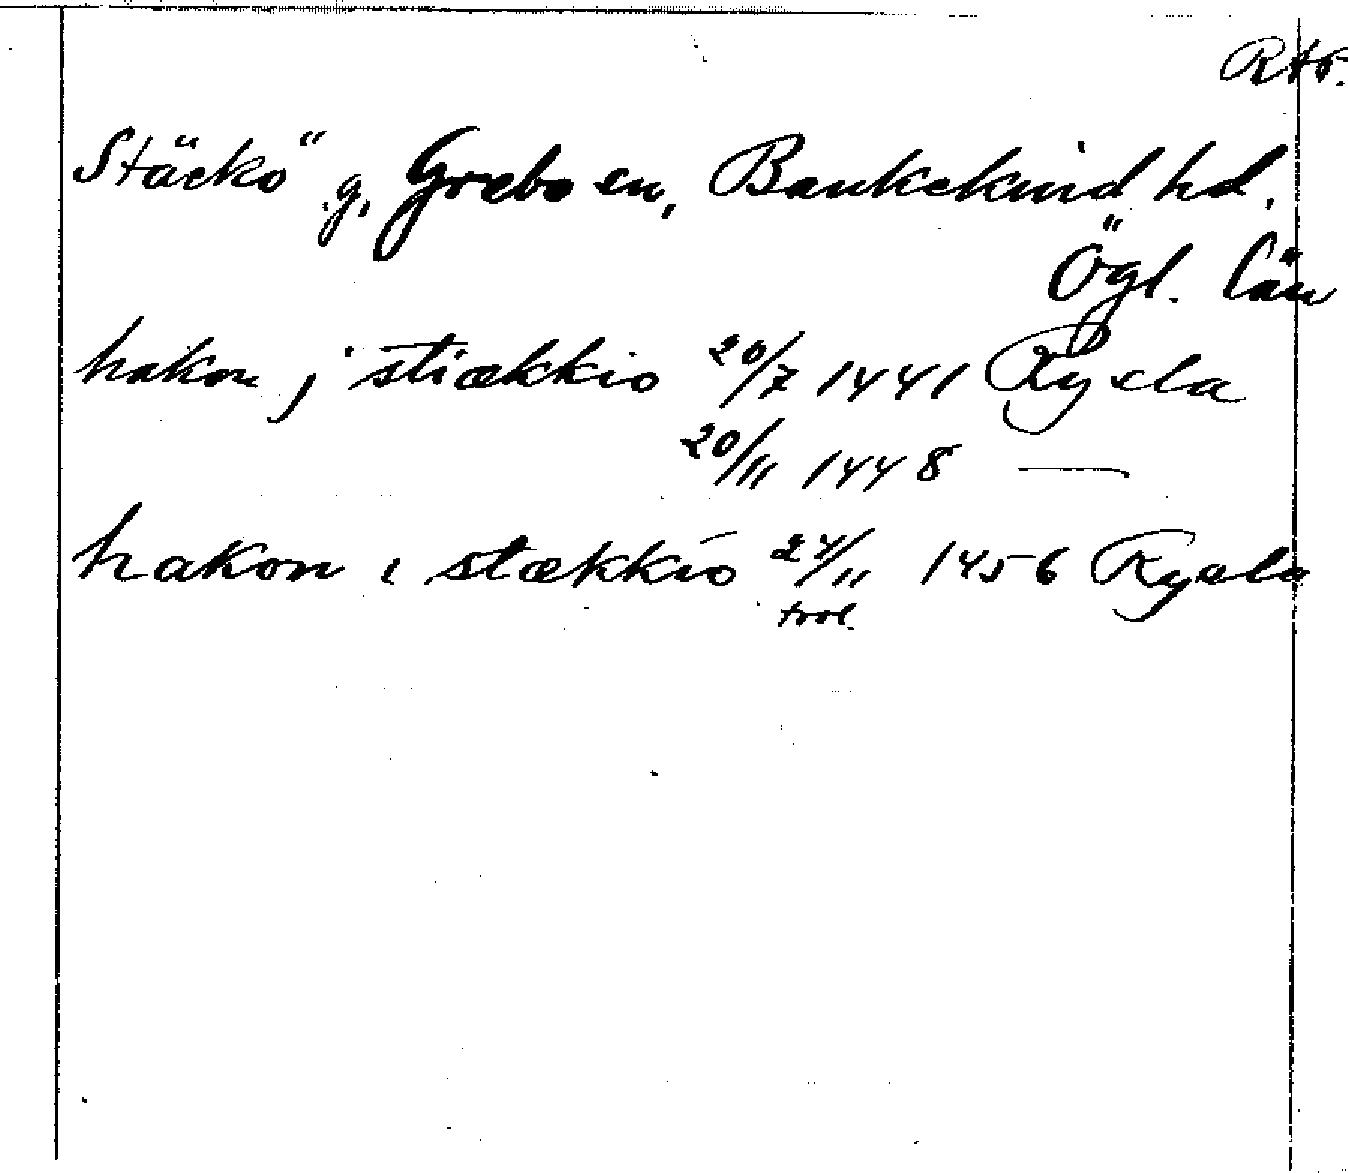 Rtr.
Stäckö g, Grebo sn, Bankekind hd.
Ögl. län
hakon j stiækkio 20/7 1441 Rysla
20/11 1448 —
hakon i stækkio 24/11 1456 Rysla
trol.